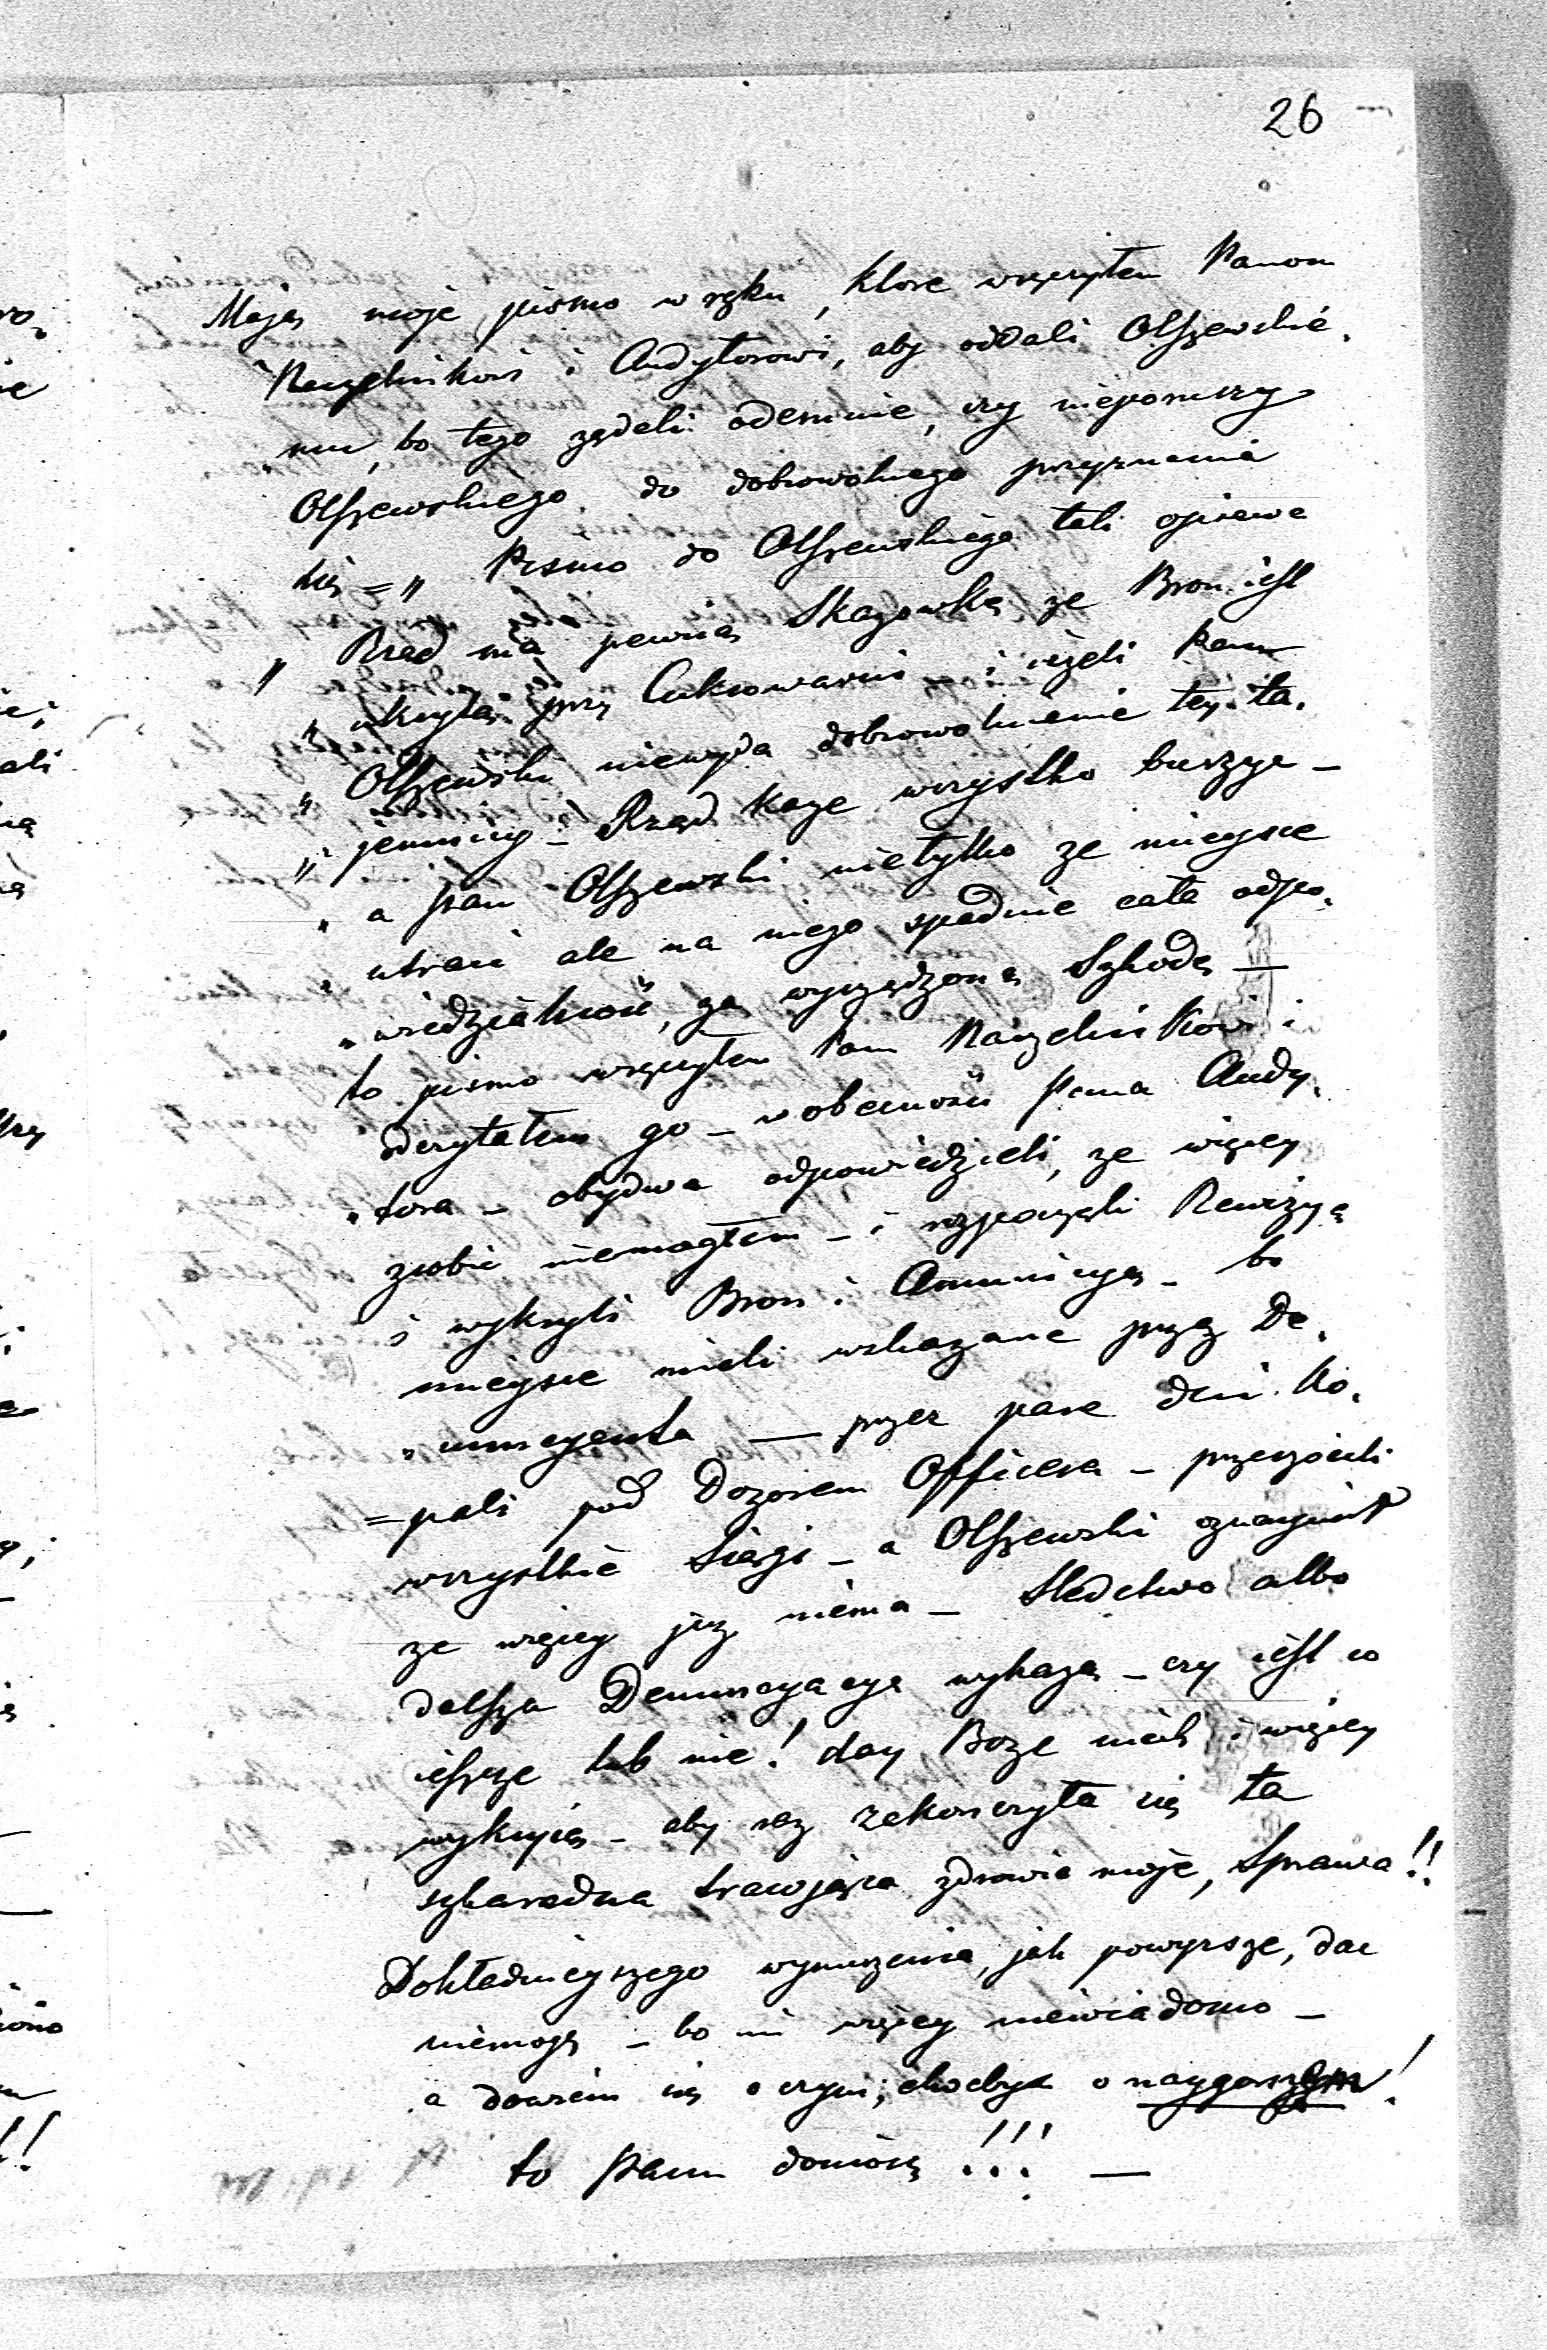 26
Mając moje pismo w ręku, ktore wręczyłem Panom
Naczelnikowi i Audytorowi, aby oddali Olszewskie-
„mu, bo tego żądali odemnie, czy nieporuszy
Olszewskiego do dobrowolnego przyznania
się =„ Pismo do Olszewskiego tak opiewa
„ Rząd ma pewną Skazowkę ze Bron iest
„ ukryta przy Cukrowarni – i ieżeli Pan
„ Olszewski niewyda dobrowolnie tey ta-
„ jemnicy – Rząd kaze wszystko burzyc –
„ a pan Olszewski nietylko ze mieysce
„ utraci ale na niego spadnie cała odpo-
„ wiedzialność, za wyrządzoną Szkodę —
to pismo wręczyłem Pan Naczelnikowi i
odczytałem go – w obecności Pana Audy-
„tora – obydwa odpowiedzieli, ze więcey
zrobic niemogłem – i rozpoczęli Rewizyą
i wykryli Bron i Amunicyą – bo
mieysce mieli wskazane przez De-
„nuncyanta — przez pare dni ko-
=pali pod Dozorem Officera – przerzucili
wszystkie Siągi – a Olszewski oznaymił
ze więcey juz niema – Sledctwo albo
dalsza Denuncyacya wykażą – czy iest co
ieszcze lub nie! day Boze niech i więcey
wykryią – aby raz zakonczyła się ta
szkaradna trawiąca zdrowie moje, Sprawa!!
Dokładnieyszego wynurzenia, jak powyrsze, dac
niemogę – bo mi więcey niewiadomo –
a dowiem się o czym; chocbyż o naygorszym!
to Panu doniosę!!! —